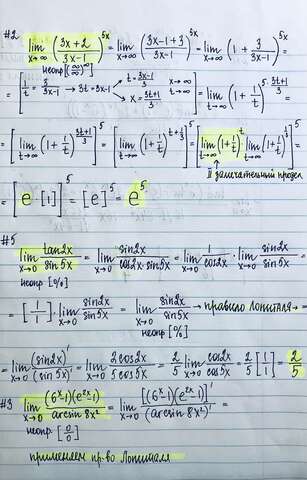 #2 lim x→∞ ((3x+2)/(3x-1))^5x = lim x→∞ ((3x-1+3)/(3x-1))^5x = lim x→∞ (1 + 3/(3x-1))^5x =
неопр [(∞/∞)^∞]
= [1/t = 3/(3x-1) → 3t = 3x-1 → t = (3x-1)/3 x→∞ → x = (3t+1)/3 t→∞] = lim t→∞ (1 + 1/t)^5·(3t+1)/3 =
= [lim t→∞ (1 + 1/t)^(3t+1)/3]^5 = [lim t→∞ (1 + 1/t)^t+1/3]^5 = [lim t→∞ (1+1/t)^t · lim t→∞ (1+1/t)^1/3]^5 =
II замечательный предел
= [e · [1]]^5 = [e]^5 = e^5
#5 lim x→0 tan2x/sin5x = lim x→0 sin2x/(cos2x·sin5x) = lim x→0 1/cos2x · lim x→0 sin2x/sin5x =
неопр [0/0]
= [1/1] · lim x→0 sin2x/sin5x = lim x→0 sin2x/sin5x → правило Лопиталя →
неопр [0/0]
= lim x→0 (sin2x)'/(sin5x)' = lim x→0 2cos2x/5cos5x = 2/5 lim x→0 cos2x/cos5x = 2/5 [1] = 2/5
#3 lim x→0 (6^x-1)(e^2x-1)/arcsin 8x² = lim x→0 [(6^x-1)(e^2x-1)]'/(arcsin 8x²)' =
неопр [0/0]
применяем пр-во Лопиталя